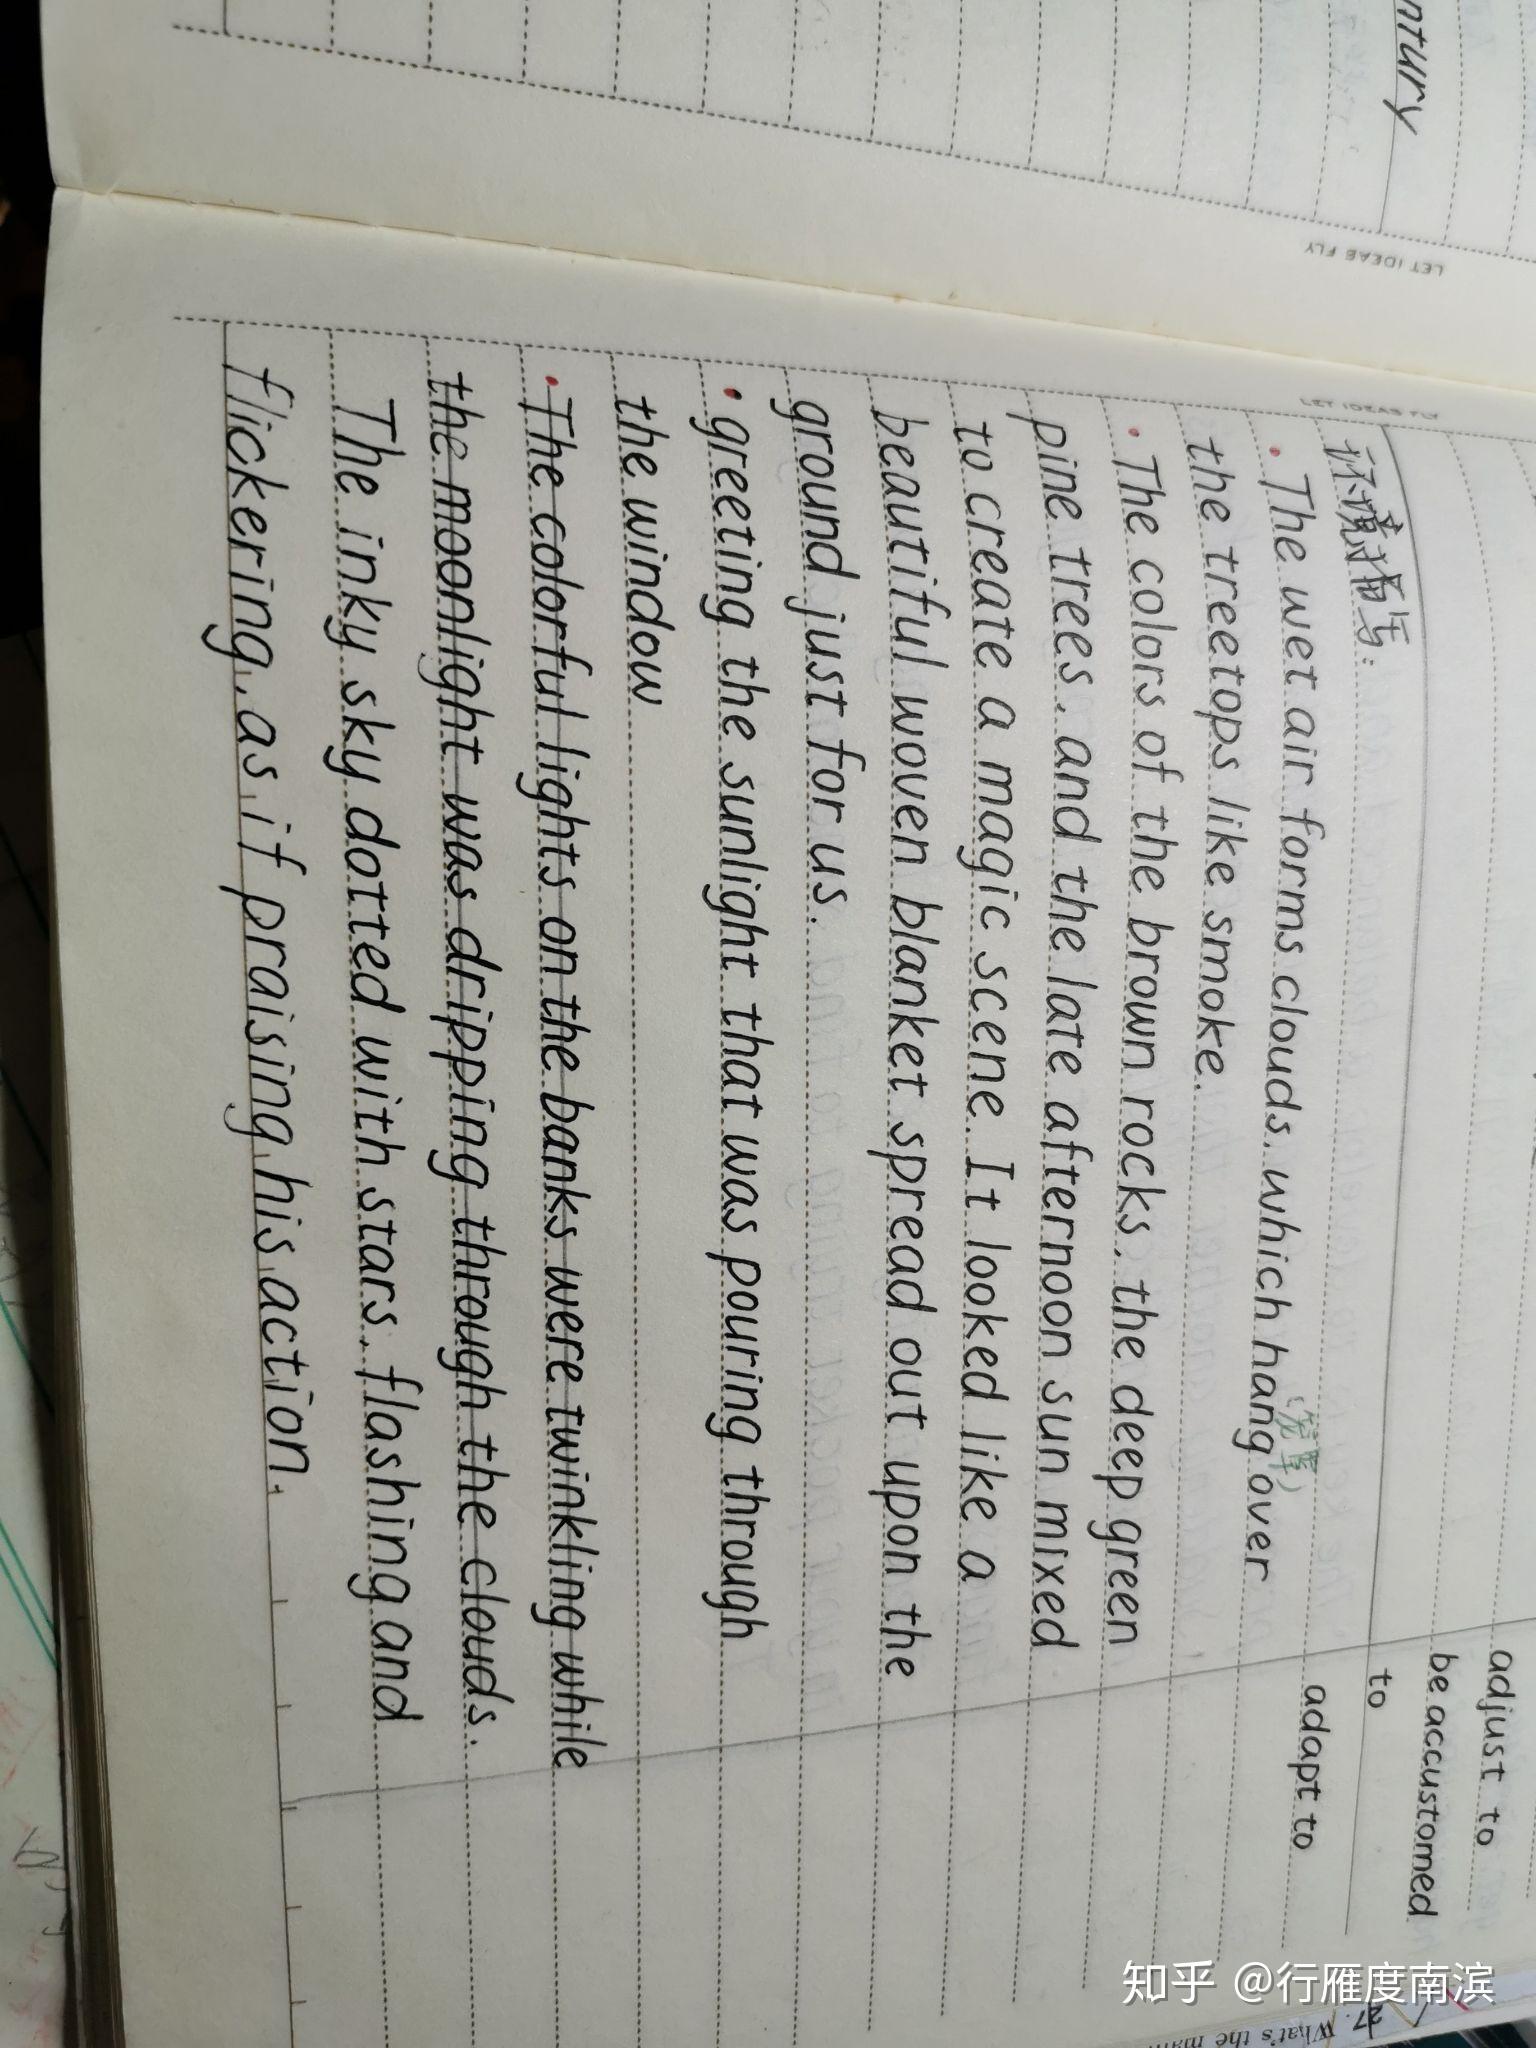 ntury
LET IDEAS FLY
LET IDEAS FLY
adjust to
be accustomed
to
adapt to
环境描写:
· The wet air forms clouds, which hang over
(笼罩)
the treetops like smoke.
· The colors of the brown rocks, the deep green
pine trees, and the late afternoon sun mixed
to create a magic scene. It looked like a
beautiful woven blanket spread out upon the
ground just for us.
· greeting the sunlight that was pouring through
the window
· The colorful lights on the banks were twinkling while
the moonlight was dripping through the clouds.
The inky sky dotted with stars, flashing and
flickering, as if praising his action.
27. What's the main
知乎 @行雁度南滨